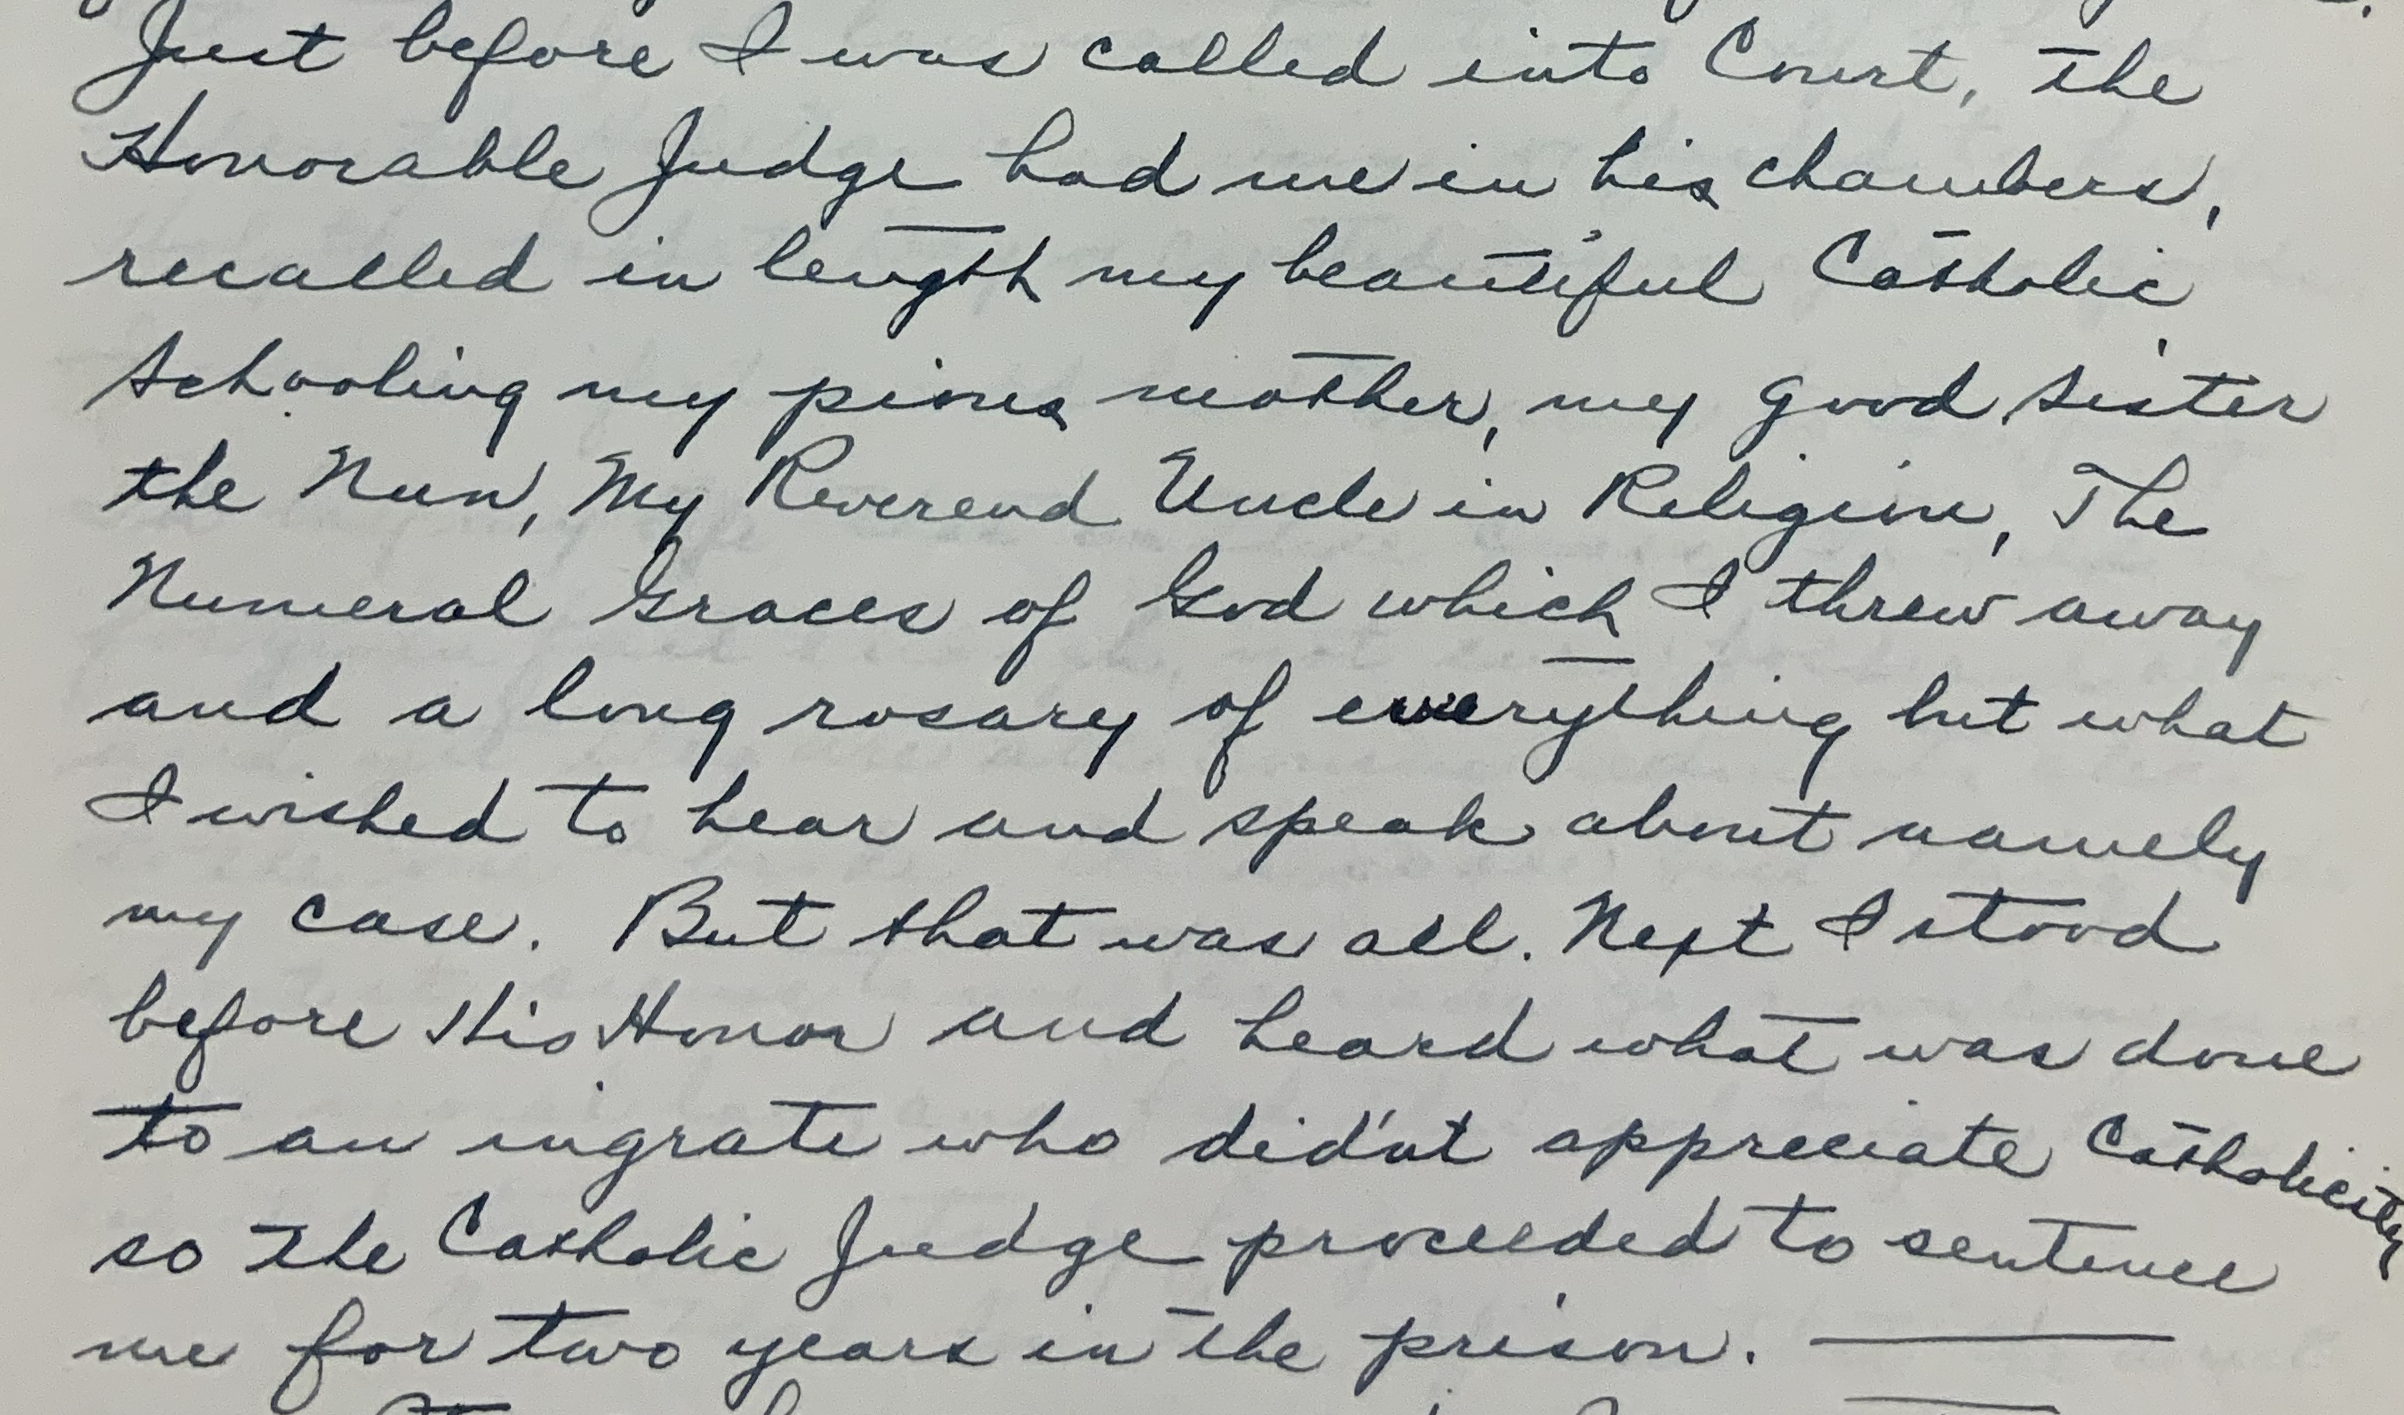 Just before I was called into Court, the
Honorable Judge had me in his chambers,
recalled in length my beautiful Catholic
schooling my pious mother, my good sister
the Nun, My Reverend Uncle in Religion, The
Numeral Graces of God which I threw away
and a long rosary of everything but what
I wished to hear and speak about namely
my case. But that was all. Next I stood
before His Honor and heard what was done
to an ingrate who did'nt appreciate Catholicity
so the Catholic Judge proceeded to sentence
me for two years in the prison. —